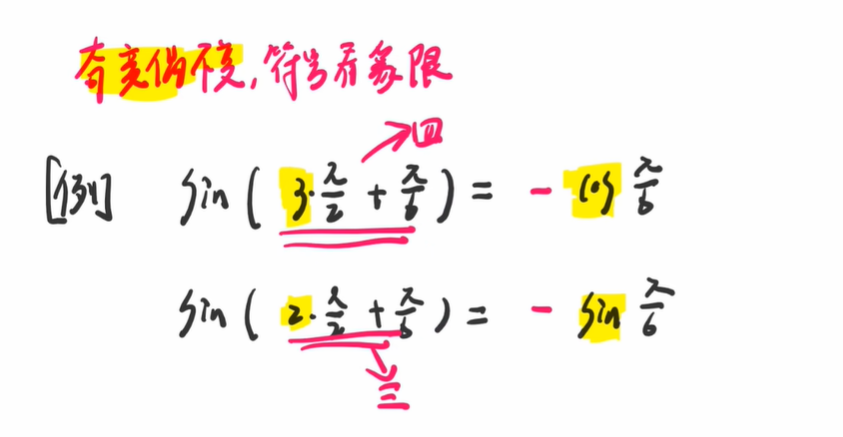 奇变偶不变,符号看象限
四
[例] sin( 3·π/2 + π/6 ) = - cos π/6
sin( 2·π/2 + π/6 ) = - sin π/6
三